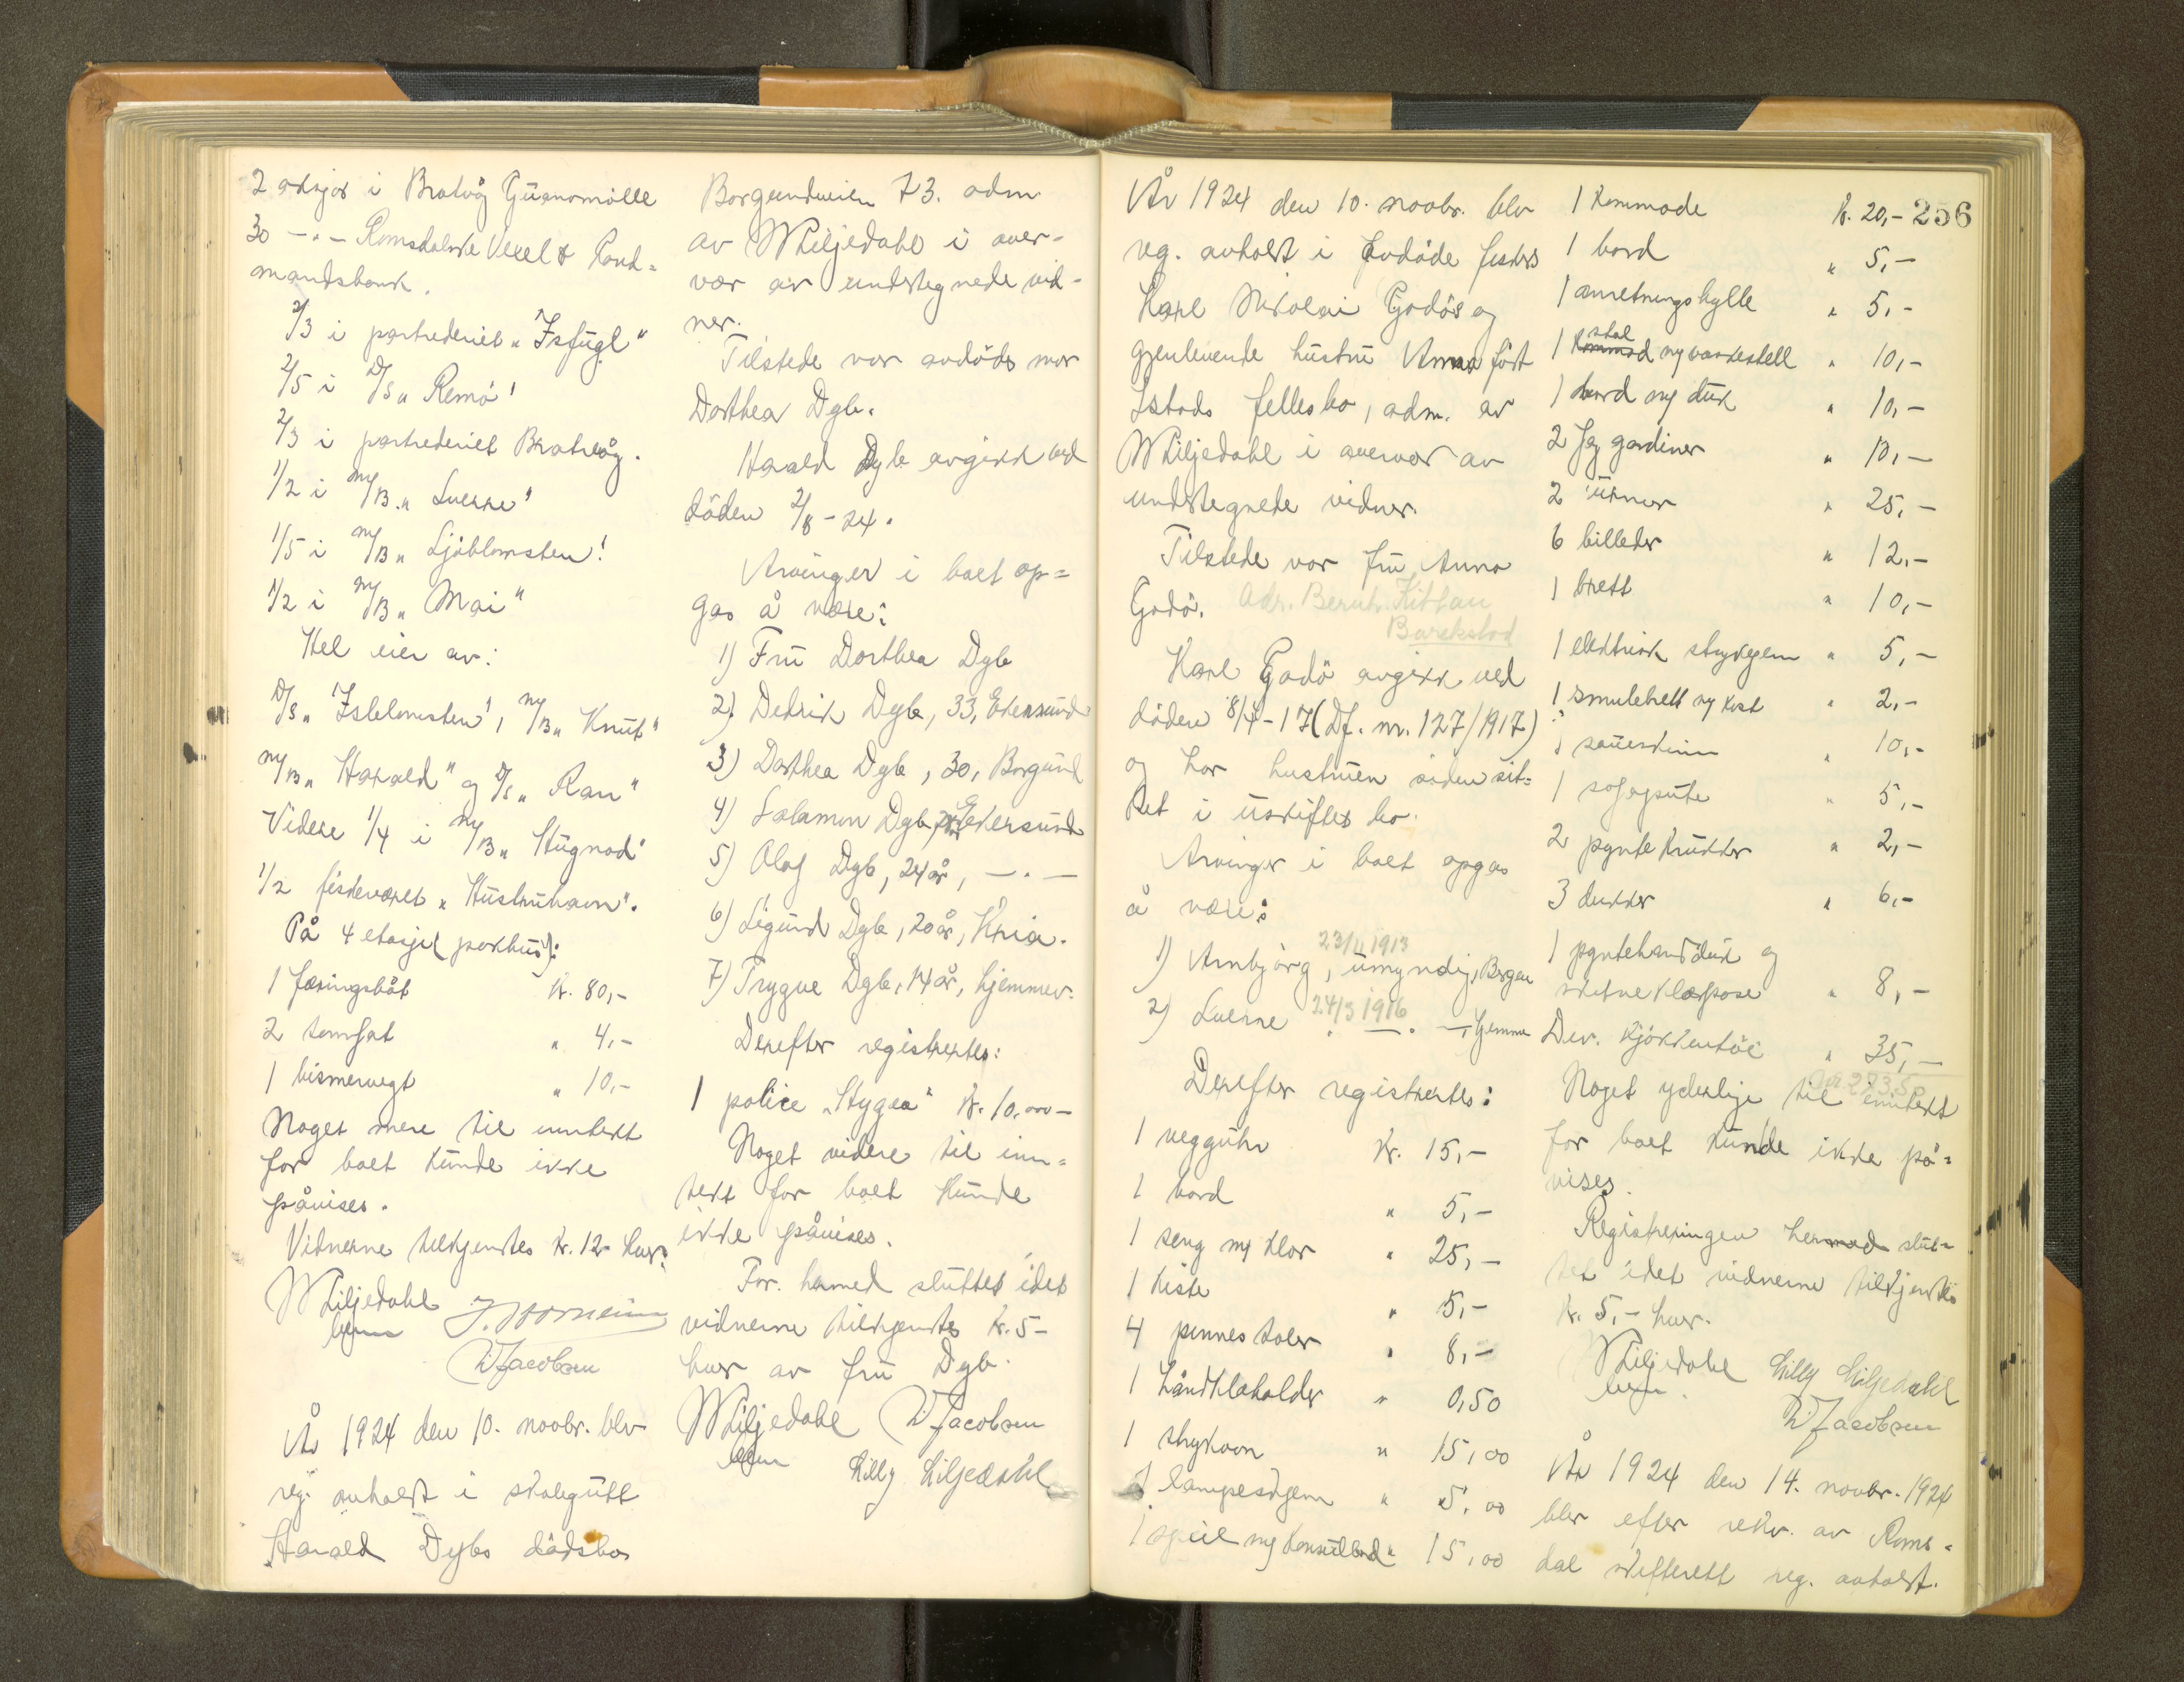 2 aksjer i Bratvåg Guanomölle
30 —"— Romsdalske Vexel & Land=
mandsbank.
2/3 i partrederiet "Isfugl"
2/5 i D/S "Remö"
2/3 i partrederiet Bratvåg.
1/2 i M/B "Sverre"
1/5 i M/B "Sjöblomsten"
1/2 i M/B "Mai"
Hel eier av:
D/S "Isblomsten", M/B "Knut"
M/B "Harald" og D/S "Ran"
Videre 1/4 i M/B "Stugnad"
1/2 fiskeværet "Hustruhavn".
På 4 etasje (pakhus):
1 færingsbåt kr. 80,-
2 tomfat " 4,-
1 bismervegt " 10,-
Noget mere til inntekt
for boet kunde ikke
påvises.
Vidnerne tilkjendtes kr. 12 hver.
W Liljedahl J. Hornein
W Jacobsen
År 1924 den 10. novbr. blev
reg. avholdt i skolegutt
Harald Dybs dödsbo
Borgundveien 73. adm
av W Liljedahl i over=
vær av undertegnede vid=
ner.
Tilstede var avdödes mor
Dorthea Dyb.
Harald Dyb avgikk ved
döden 2/8 - 24.
Arvinger i boet op=
gas å være:
1) Fru Dorthea Dyb
2) Detrik Dyb, 33, Ekersund
3) Dorthea Dyb, 30, Borgund
4) Salamon Dyb, Ekersund
5) Olaf Dyb, 24 år, —"—
6) Sigurd Dyb, 20 år, Kria.
7) Trygve Dyb, 14 år, hjemmev.
Derefter registrertes:
1 police "Hygea" kr. 10.000 -
Noget videre til inn=
tekt for boet kunde
ikke påvises.
For. hermed sluttet idet
vidnerne tilkjendtes kr. 5 -
hver av fru Dyb.
W Liljedahl W Jacobsen
Lilly Liljedahl
256
År 1924 den 10. novbr. blev
reg. avholdt i avdöde fiskers
Karl Nikolai Godös og
gjenlevende hustru Anna födt
Istads fellesbo, adm. av
W Liljedahl i overvær av
undertegnede vidner.
Tilstede var fru Anna
Godö. Adr. Bernh. Kittau
Barekstad
Karl Godö avgikk ved
döden 18/4 - 17 (Df. nr. 127/1917)
og har hustruen siden sit=
tet i uskiftet bo.
Arvinger i boet opgas
å være:
23/11 1913
1) Arnbjörg, umyndig, Bergen
24/3 1916
2) Sverre " —"— hjemme
Derefter registrertes:
1 vegguhr kr. 15,-
1 bord " 5,-
1 seng m/ klær " 25,-
1 kiste " 5,-
4 pinnestoler " 8,-
1 håndklæholder " 0,50
1 strykovn " 15,00
1 lampeskjerm " 5,00
1 speil m/ konsulbord " 15,00
1 kommode kr. 20,-
1 bord " 5,-
1 anretningshylle " 5,-
stål
1 kommod m/ vaskestell " 10,-
1 bord m/ duk " 10,-
2 fag gardiner " 10,-
2 urner " 25,-
6 billeder " 12,-
1 brett " 10,-
1 elektrisk strykejern " 5,-
1 smulebrett m/ kost " 2,-
1 saueskinn " 10,-
1 sofapute " 5,-
2 pyntekrukker " 2,-
3 dukker " 6,-
1 pyntehandduk og
skitneklærpose " 8,-
Div. kjökkentöi " 35,-
kr. 273,50
Noget yderlige til inntekt
for boet kunde ikke på=
vises.
Registreringen hermed slut=
tet idet vidnerne tilkjendtes
kr. 5,- hver.
W Liljedahl Lilly Liljedahl
W Jacobsen
År 1924 den 14. novbr. 1924
blev efter rekv. av Roms=
dal skifterett reg. avholdt.